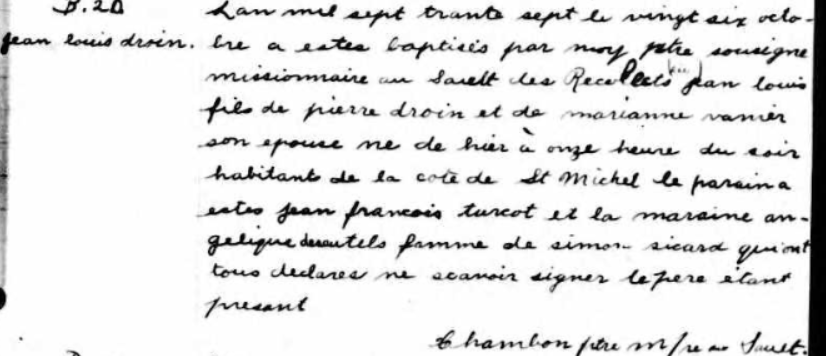 B. 20
jean louis droin.
Lan mil sept trante sept le vingt six octo-
bre a estes baptisés par moy ptre sousigne
missionnaire au Sault des Recollects jean louis
fils de pierre droin et de marianne vanier
son epouse ne de hier à onze heure du soir
habitant de la cote de St Michel le parain a
estes jean francois turcot et la maraine an-
gelique desautels famme de simon sicard qui ont
tous declares ne scavoir signer le pere étant
presant
Chambon ptre m/re au Sault.